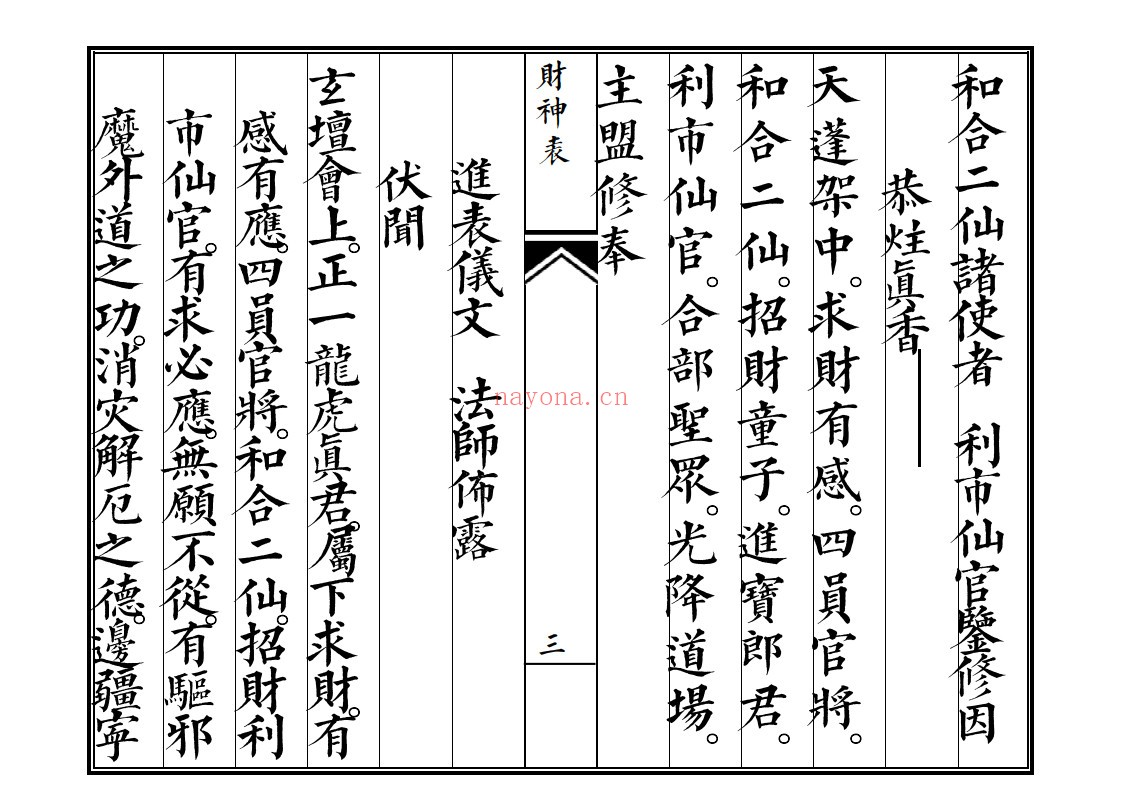 和合二仙諸使者　利市仙官鑒修因
恭炷眞香
天蓬架中。求財有感。四員官將。
和合二仙。招財童子。進寶郎君。
利市仙官。合部聖眾。光降道場。
主盟修奉
財神表
三
進表儀文　法師佈露
伏聞
玄壇會上。正一龍虎眞君。屬下求財。有
感有應。四員官將。和合二仙。招財利
市仙官。有求必應。無願不從。有驅邪
魔外道之功。消灾解厄之德。邊疆寕
nayona.cn